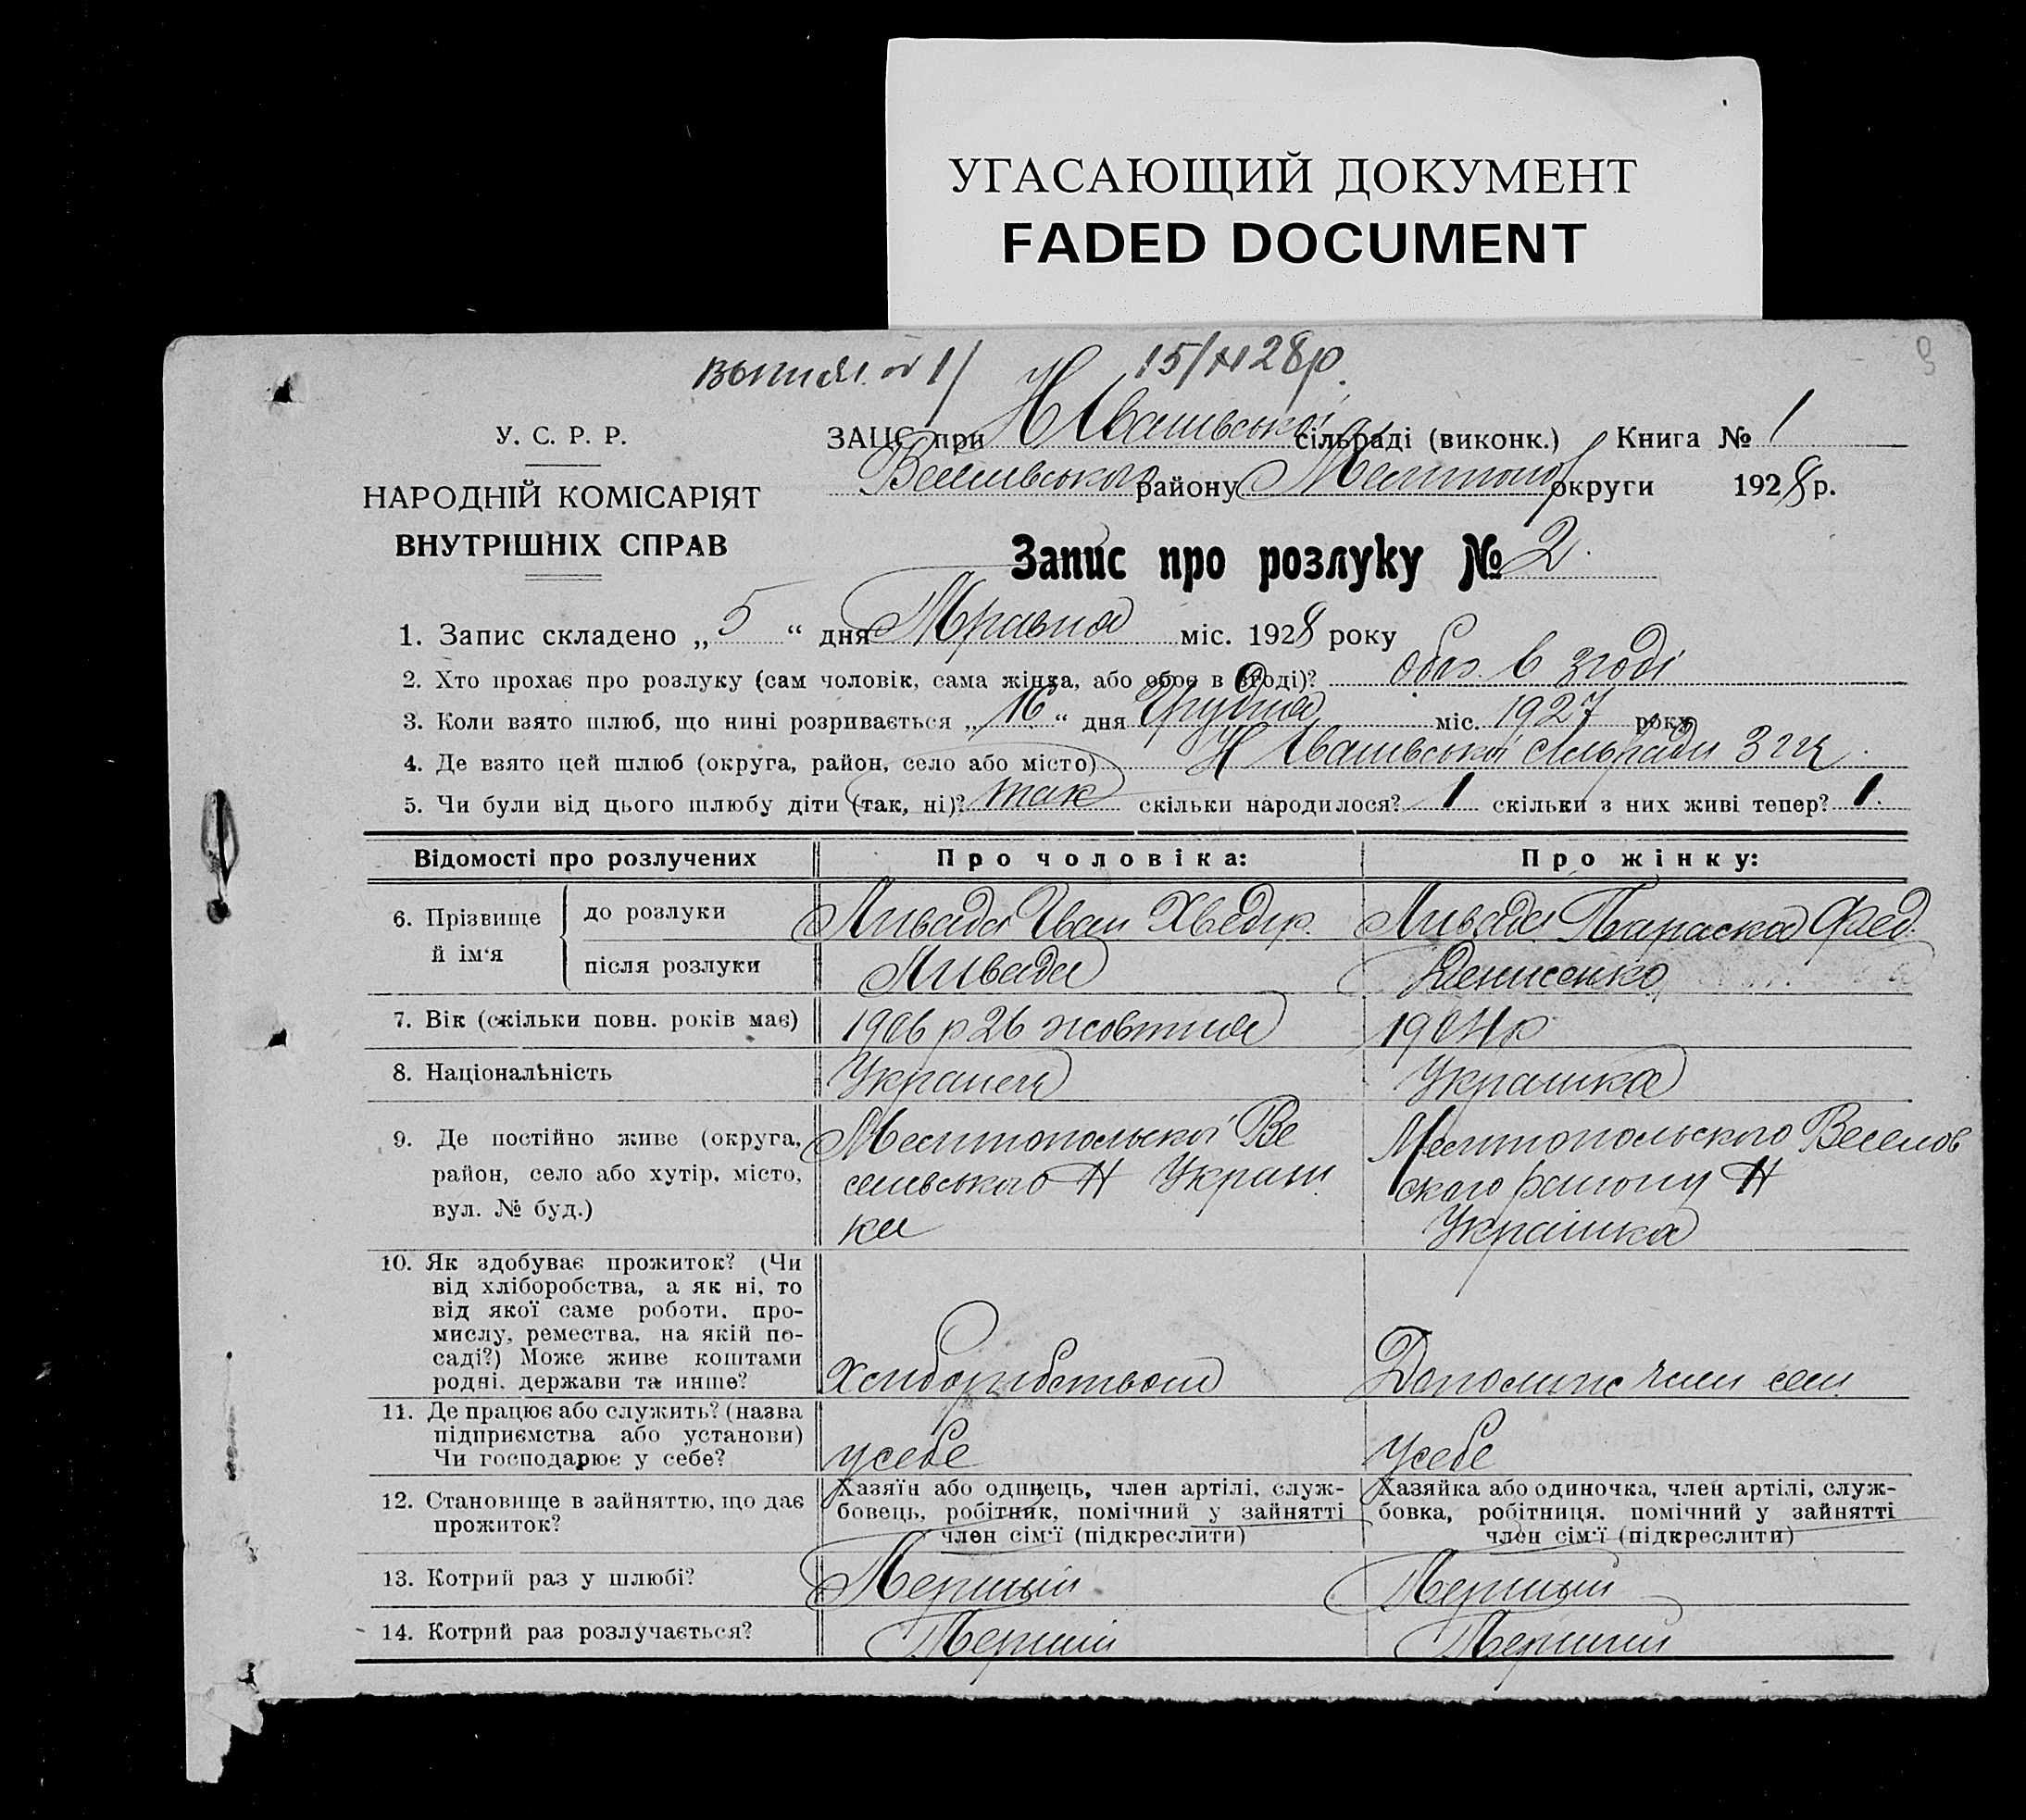 УГАСАЮЩИЙ ДОКУМЕНТ
FADED DOCUMENT
15/XI 28 р.
У. С. Р. Р.
НАРОДНІЙ КОМІСАРІЯТ
ВНУТРІШНІХ СПРАВ
ЗАЦС при сільраді (виконк.) Книга № 1
району округи 1928 р.
Запис про розлуку № 2.
1. Запис складено „ 5 “ дня Травня міс. 1928 року
2. Хто прохає про розлуку (сам чоловік, сама жінка, або обоє в згоді)? обоє в згоді
3. Коли взято шлюб, що нині розривається „ 16 “ дня Грудня міс. 1927 року
4. Де взято цей шлюб (округа, район, село або місто) сільради
5. Чи були від цього шлюбу діти (так, ні)? так скільки народилося? 1 скільки з них живі тепер? 1.
Відомості про розлучених Про чоловіка: Про жінку:
6. Прізвище й ім‘я до розлуки Ливада Іван Хведір. Ливада Параска Фед.
після розлуки Ливада Денисенко
7. Вік (скільки повн. років має) 1906 р 26 жовтня 1904 р
8. Національність Українец Українка
9. Де постійно живе (округа, район, село або хутір, місто, вул. № буд.)
Мелитопольскої Ве
селивського Н Україн
ки
Мелитопольского Веселов
ского району Н
Українка
10. Як здобуває прожиток? (Чи
від хліборобства, а як ні, то
від якої саме роботи, про-
мислу, ремества, на якій по-
саді?) Може живе коштами
родні, держави та инше?
Хлиборибством
11. Де працює або служить? (назва
підприємства або установи)
Чи господарює у себе?
усебе Усебе
12. Становище в зайняттю, що дає
прожиток?
Хазяїн або одинець, член артілі, служ-
бовець, робітник, помічний у зайнятті
член сім‘ї (підкреслити)
Хазяйка або одиночка, член артілі, служ-
бовка, робітниця, помічний у зайнятті
член сім‘ї (підкреслити)
13. Котрий раз у шлюбі? Перший Перший
14. Котрий раз розлучається? Перший Перший